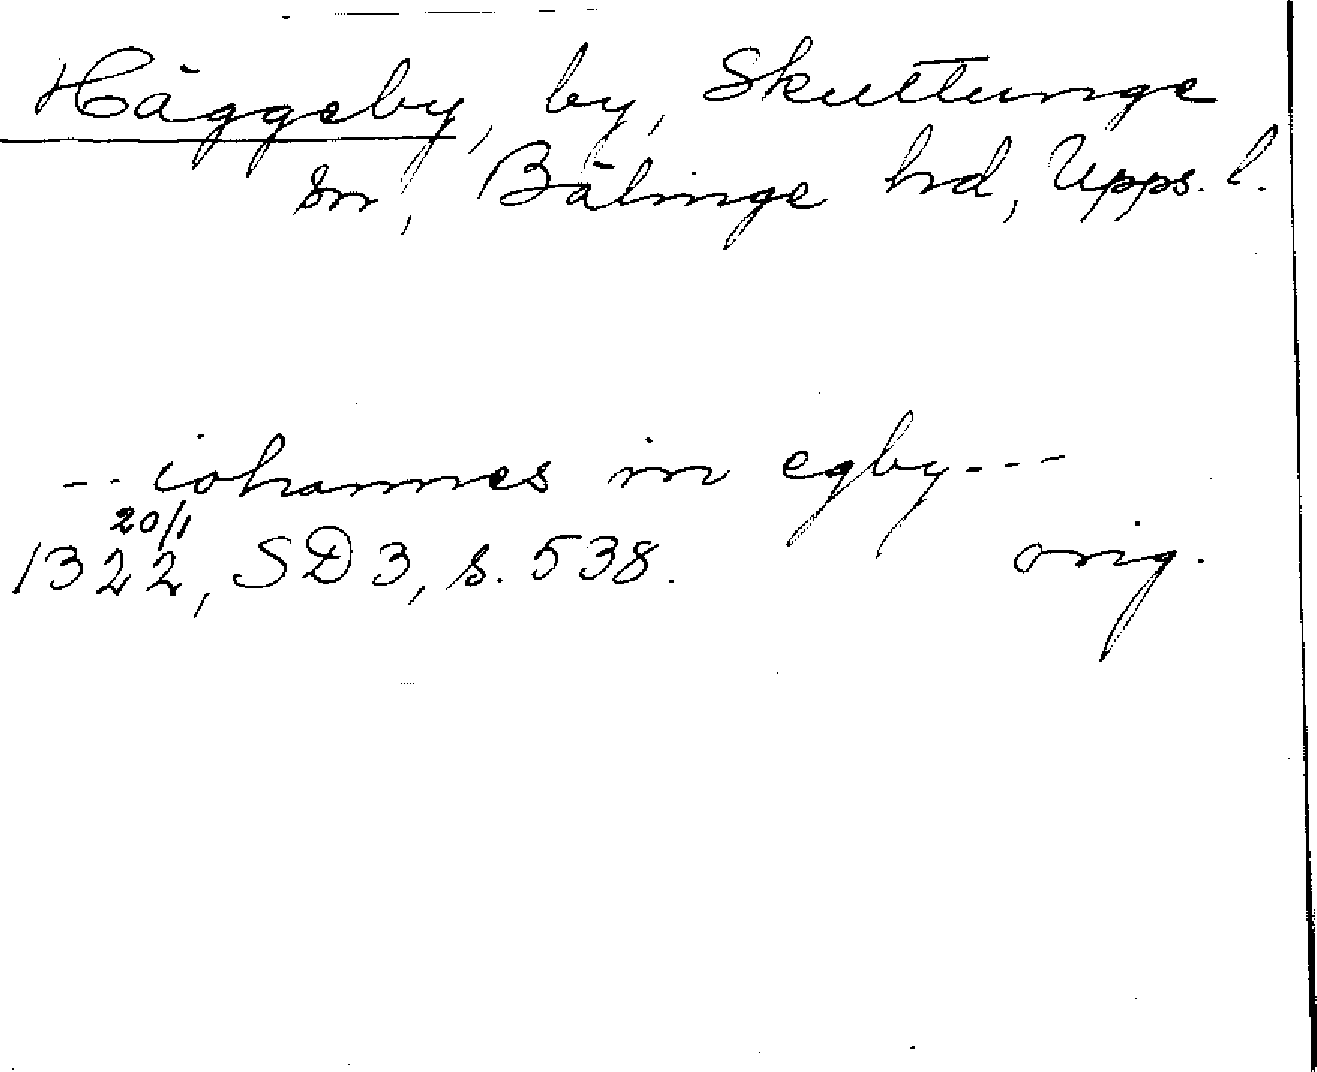 Häggeby, by, Skuttunge
sn, Bälinge hd, Upps. l.
-- iohannes in egby ---
20/1
1322, SD 3, s. 538. orig.